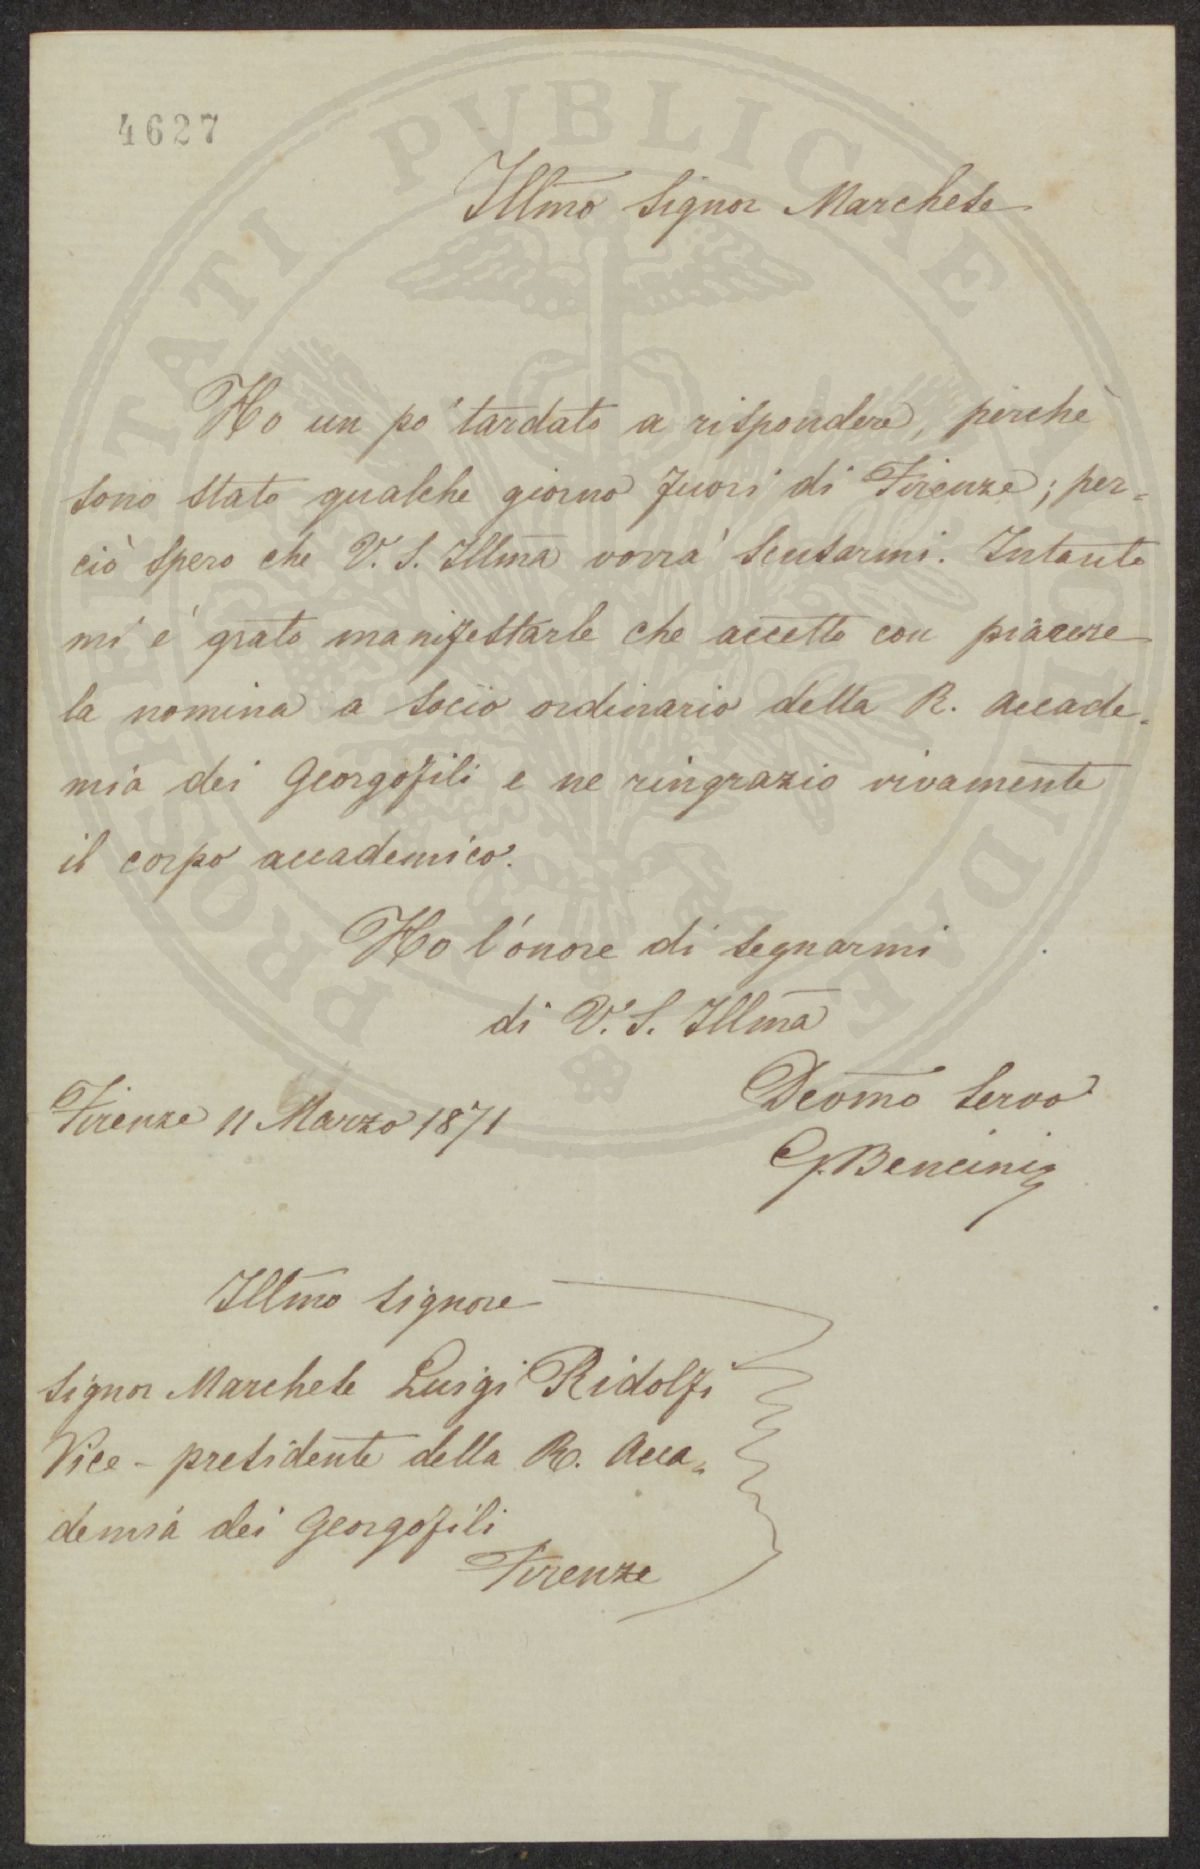 4627
Illmo Signor Marchese
Ho un po' tardato a rispondere, perchè
sono stato qualche giorno fuori di Firenze; per=
ciò spero che V. S. Illma vorrà scusarmi. Intanto
mi è grato manifestarle che accetto con piacere
la nomina a socio ordinario della R. Accade=
mia dei Georgofili e ne ringrazio vivamente
il corpo accademico.
Ho l'onore di segnarmi
di V. S. Illma
Devomo Servo
G. Bencini
Firenze 11 Marzo 1871
Illmo Signore
Signor Marchese Luigi Ridolfi
Vice-presidente della R. Acca=
demia dei Georgofili
Firenze
PROSPERITATI PUBLICAE AUGENDAE